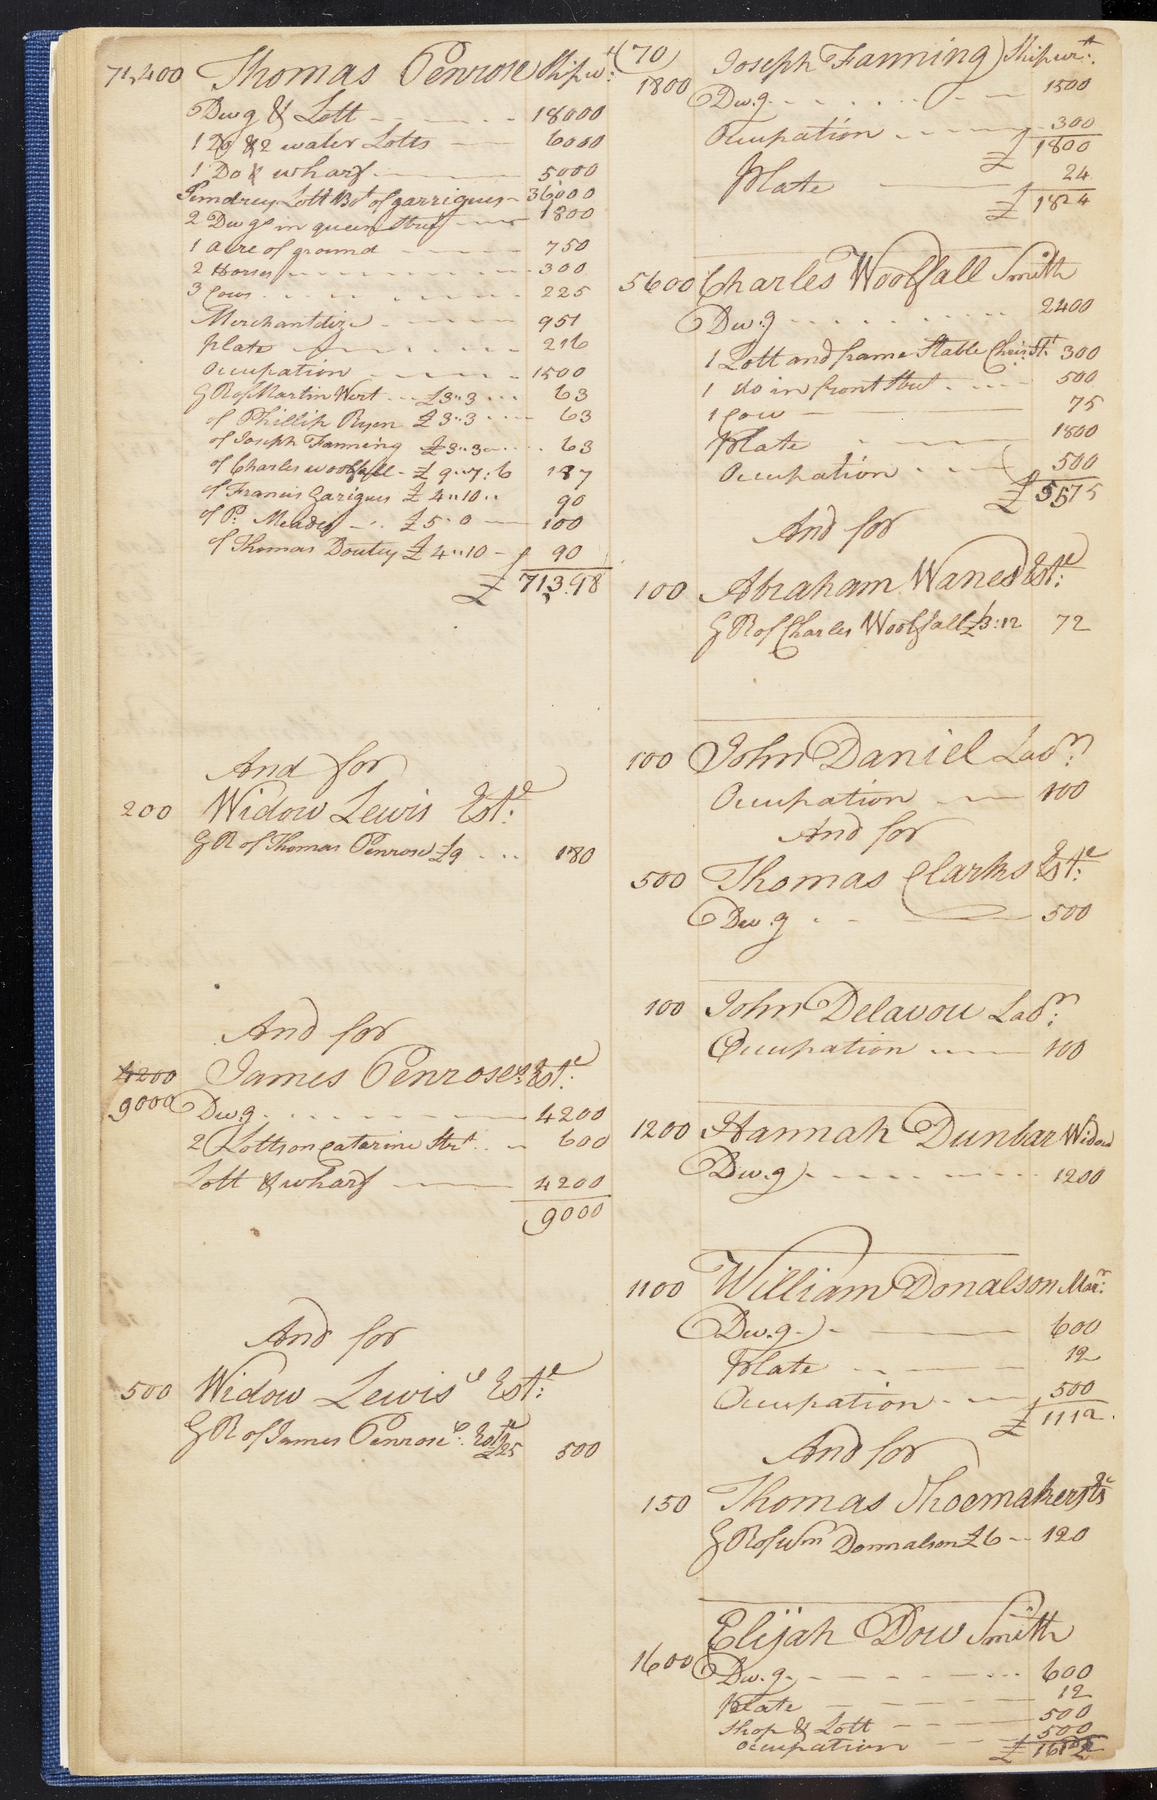 (70)
71,400 Thomas Penrose Shipwt:
Dwg & Lott 18000
1 Do & 2 water Lotts 6000
1 Do & wharf 5000
Sundrey Lott Bot of garrigues 36000
2 Dwgs in queen street 1800
1 acre of ground 750
2 Horses 300
3 Cows 225
Merchantdize 951
plate 216
Occupation 1500
G R of Martin Wert £3..3 63
of Phillip Ryen £3..3 63
of Joseph Fanning £3..3 63
of Charles woolfall £9..7:6 187
of Francis Garigues £4..10.. 90
of P: Meades £5..0 100
of Thomas Doutey £4..10 90
£ 71398
And for
200 Widow Lewis Este:
G R of Thomas Penrose £9 180
And for
4200 James Penroses Este:
9000 Dwg 4200
2 Lotts on Catarine Strt 600
Lott & wharf 4200
9000
And for
500 Widow Lewis's Este:
G R of James Penrose's: Este £25 500
1800 Joseph Fanning Shipwrt:
Dwg 1500
Occupation 300
£ 1800
Plate 24
£ 1824
5600 Charles Woolfall Smith
Dwg 2400
1 Lott and frame Stable Chris St: 300
1 do in front street 500
1 Cow 75
Plate 1800
Occupation 500
£ 5575
And for
100 Abraham Wanes Este:
G R of Charles Woolfall £3:12 72
100 John Daniel Labr:
Occupation 100
And for
500 Thomas Clarks Este:
Dwg 500
100 John Delavou Labr:
Occupation 100
1200 Hannah Dunbar Widow
Dwg 1200
1100 William Donalson Mar:
Dwg 600
Plate 12
Occupation 500
£ 1112
And for
150 Thomas Shoemakers Este
G R of Wm Donnalson £6 120
1600 Elijah Dow Smith
Dwg 600
Plate 12
Shop & Lott 500
Occupation 500
£ 1612